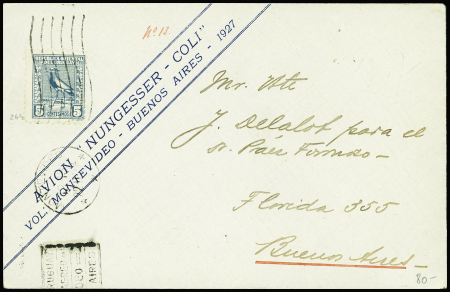 Nº 12.
REPUBLICA ORIENTAL
DEL URUGUAY
5 CENTESIMOS 5
AVION "NUNGESSER - COLI"
VOL: MONTEVIDEO - BUENOS AIRES - 1927
Mr. Ate
J. Delalot para el
sr. Paez Formoso -
Florida 355
Buenos Aires -
AIRES
80-